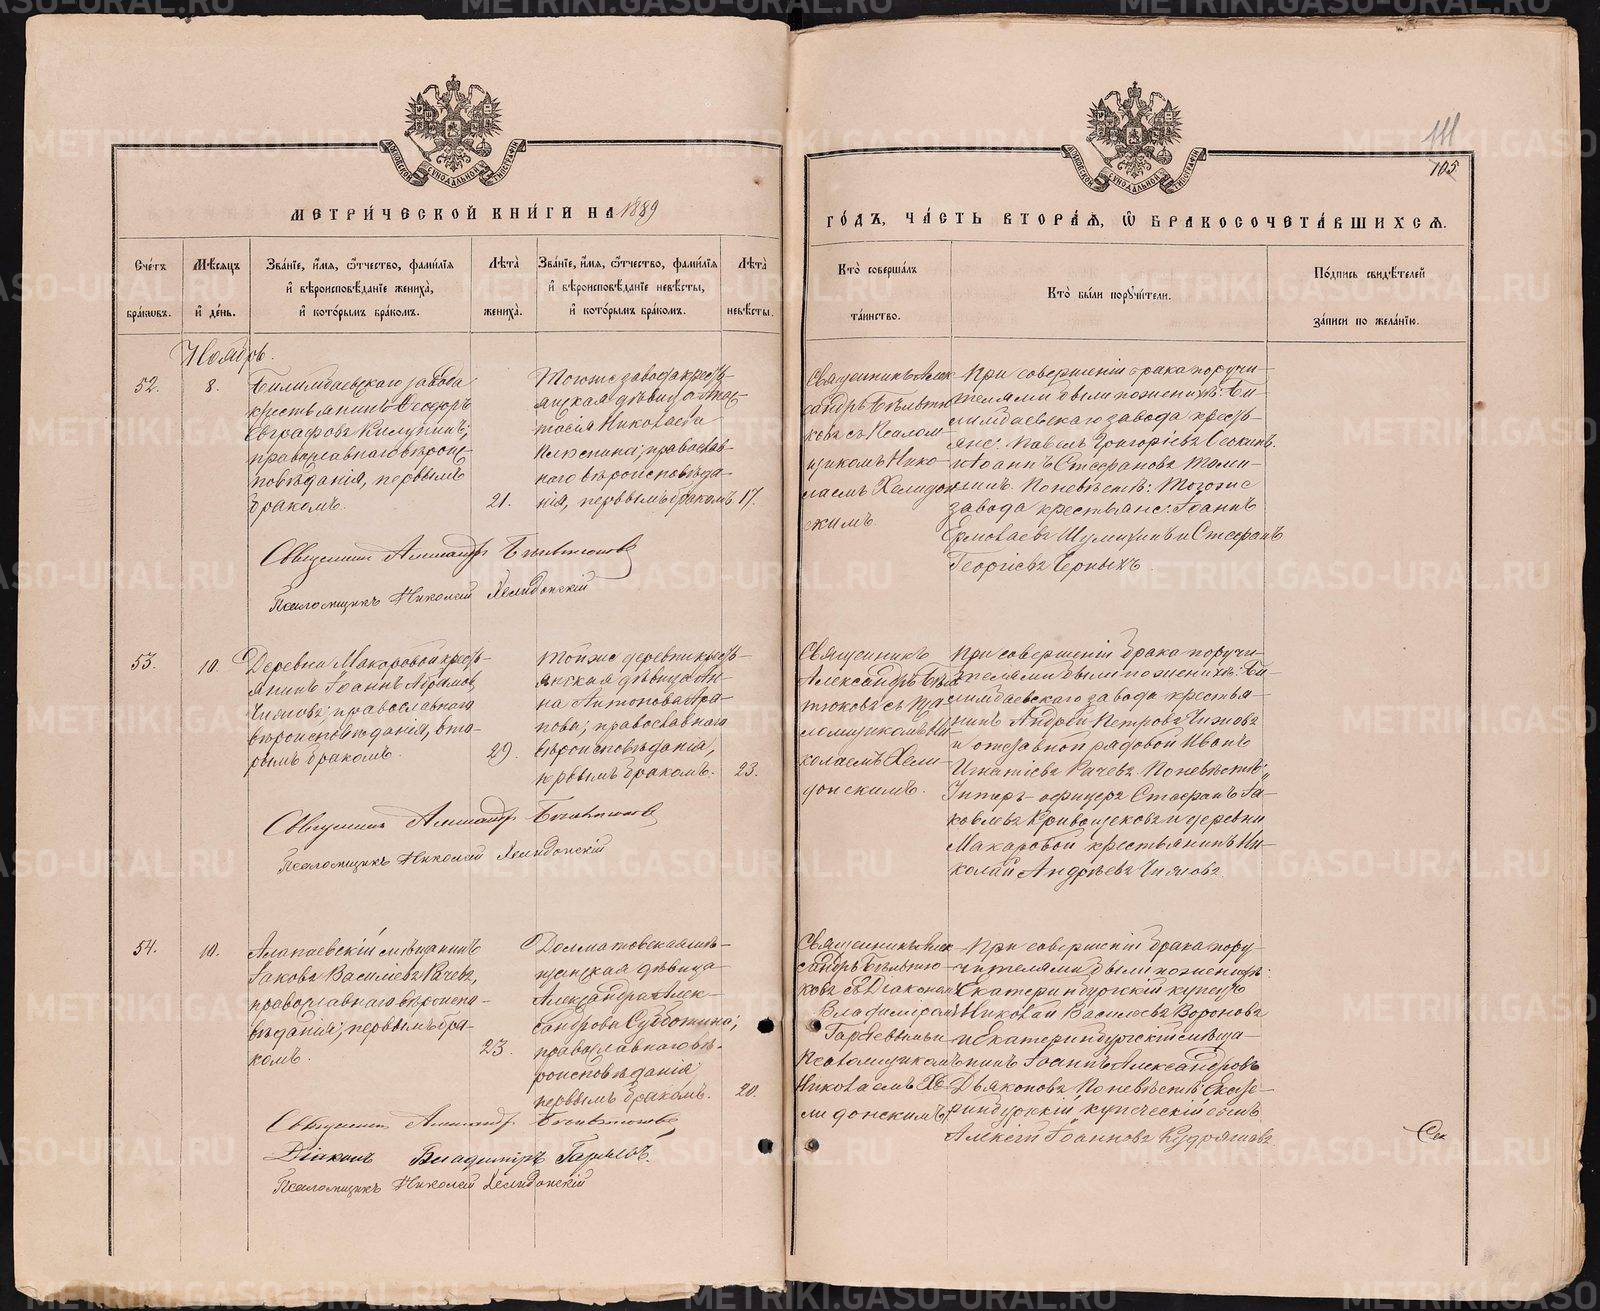 МЕТРИ́ЧЕСКОЙ КНИ́ГИ НА 1889
ГО́ДЪ, ЧА́СТЬ ВТОРА́Ѧ, Ѽ БРАКОСОЧЕТА́ВШИХСѦ.
111
105
Сче́тъ бра́кωвъ.
Мѣ́сяцъ и҆ де́нь.
Зва́нїе, и҆́мя, ѻ҆́тчество, фами́лїя
и҆ вѣроисповѣ́данїе жениха̀,
и҆ кото́рымъ бра́комъ.
Лѣ́та жениха̀.
Зва́нїе, и҆́мя, ѻ҆́тчество, фами́лїя
и҆ вѣроисповѣ́данїе невѣ́сты,
и҆ кото́рымъ бра́комъ.
Лѣ́та невѣ́сты.
Кто̀ соверша́лъ
та́инство.
Кто̀ бы́ли порꙋчи́тели.
По́дпись свидѣ́телей
за́писи по жела́нїю.
Ноябрь.
52.
8.
Билимбаевскаго завода
крестьянинъ Ѳеодоръ
Евграфовъ
православнаго вѣроис-
повѣданія, первымъ
бракомъ.
21.
Тогоже завода кресть-
янская дѣвица Анас-
тасія Николаева
православ-
наго вѣроисповѣда-
нія, первымъ бракомъ.
17.
Священникъ Алек-
сандръ Бѣльтю-
ковъ съ Псалом-
щикомъ Нико-
лаемъ Хелидон-
скимъ.
При совершеніи брака поручи-
телями были по женихѣ: Би-
лимбаевскаго завода кресть-
яне: Павелъ Григорьевъ
и Іоаннъ Стефановъ
По невѣстѣ: Тогоже
завода крестьяне: Іоаннъ
Ермолаевъ Шумихинъ и Стефанъ
Георгіевъ Черныхъ.
Священникъ Александръ Бѣльтюковъ
Псаломщикъ Николай Хелидонскій
53.
10.
Деревни Макаровой кресть-
янинъ Іоаннъ Абрамовъ
Чижовъ; православнаго
вѣроисповѣданія, вто-
рымъ бракомъ.
29.
Тойже деревни кресть-
янская дѣвица Ан-
на Антонова Ара-
пова; православнаго
вѣроисповѣданія,
первымъ бракомъ.
23.
Священникъ
Александръ Бѣль-
тюковъ съ Пса-
ломщикомъ Ни-
колаемъ Хели-
донскимъ.
При совершеніи брака поручи-
телями были по женихѣ: Би-
лимбаевскаго завода крестья-
нинъ Андрей Петровъ Чижовъ
и отставной рядовой Иванъ
Игнатіевъ Рачевъ. По невѣстѣ:
Унтеръ-офицеръ Стефанъ Іа-
ковлевъ Кривощековъ и деревни
Макаровой крестьянинъ Ни-
колай Андреевъ Чижовъ.
Священникъ Александръ Бѣльтюковъ
Псаломщикъ Николай Хелидонскій
54.
10.
Алапаевскій мѣщанинъ
Іаковъ Василіевъ Рачевъ,
православнаго вѣроиспо-
вѣданія, первымъ бра-
комъ.
23.
Долматовская мѣ-
щанская дѣвица
Александра Алек-
сандрова Субботина;
православнаго вѣ-
роисповѣданія
первымъ бракомъ.
20.
Священникъ Алек-
сандръ Бѣльтю-
ковъ съ Діакономъ
Владиміромъ
и
Псаломщикомъ
Николаемъ Хе-
лидонскимъ.
При совершеніи брака пору-
чителями были по женихѣ:
Екатеринбургскій купецъ
Николай Василіевъ Вороновъ
и Екатеринбургскій мѣща-
нинъ Іоаннъ Александровъ
Дьяконовъ. По невѣстѣ: Екате-
ринбургскій купеческій сынъ
Алексѣй Іоанновъ Кудряшовъ
Священникъ Александръ Бѣльтюковъ
Діаконъ Владиміръ
Псаломщикъ Николай Хелидонскій
METRIKI.GASO-URAL.RU